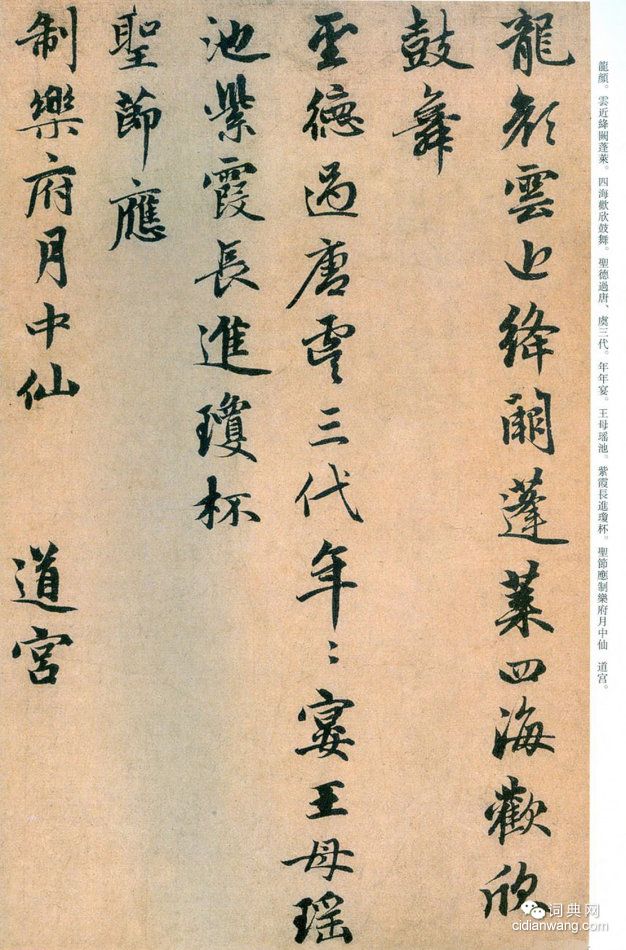 龍顔。雲近絳闕蓬萊。四海歡欣鼓舞。聖德過唐、虞三代。年年宴。王母瑶池。紫霞長進瓊杯。聖節應制樂府月中仙　道宮。
龍顔雲近絳闕蓬萊四海歡欣
鼓舞
聖德過唐虞三代年〻宴王母瑶
池紫霞長進瓊杯
聖節應
制樂府月中仙　道宮
词典网
cidianwang.com